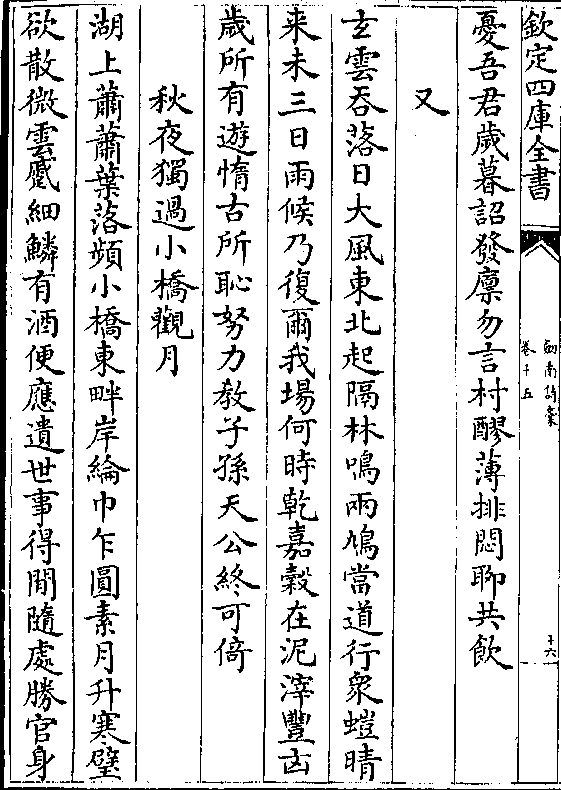 欽定四庫全書
劒南詩藁
卷十五
十六
憂吾君歲暮詔發廪勿言村醪薄排悶聊共飲
又
玄雲吞落日大風東北起隔林鳴兩鳩當道行衆螘晴
来未三日雨候乃復爾我場何時乾嘉穀在泥滓豐凶
歲所有遊惰古所恥努力教子孫天公終可倚
秋夜獨過小橋觀月
湖上蕭蕭葉落頻小橋東畔岸綸巾乍圓素月升寒璧
欲散微雲蹙細鱗有酒便應遺世事得閒隨處勝官身